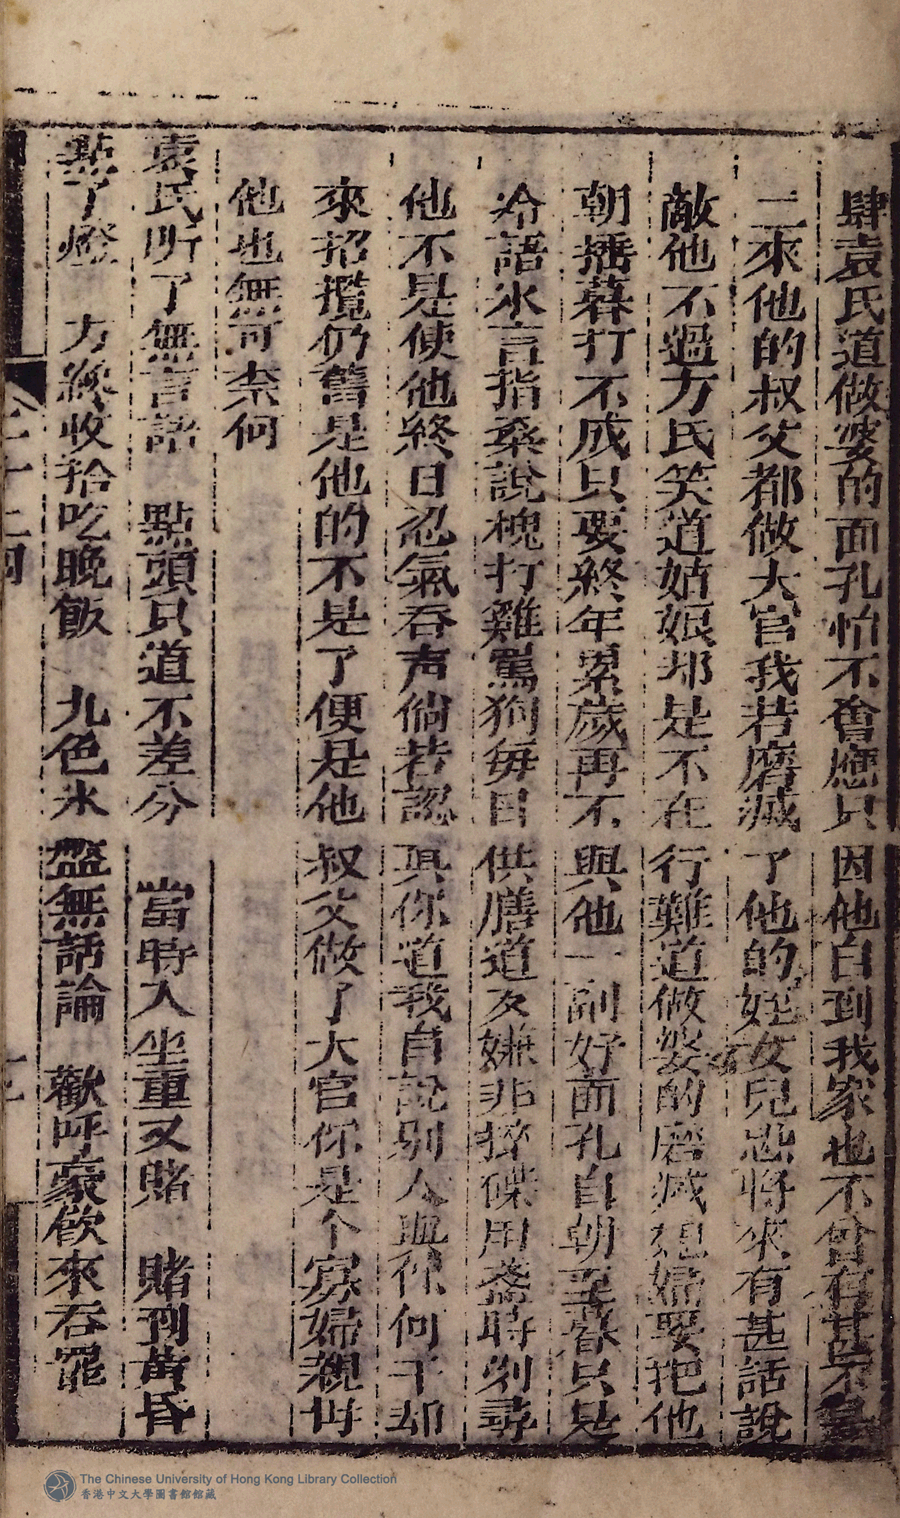 肆袁氏道做婆的面孔怕不會應只因他自到我家也不曾有甚不是
二來他的叔父都做大官我若磨滅了他的姪女兒恐將來有甚話說
敵他不過方氏笑道姑娘却是不在行難道做婆的磨滅媳婦要把他
朝捶暮打不成只要終年累歲再不與他一副好面孔自朝至暮只是
冷語冰言指桑說槐打雞罵狗每日供膳道友嫌非摔碟用盞時刻尋
他不是使他終日忍氣吞声倘若認真你道我自說别人與你何干却
來招攬仍舊是他的不是了便是他叔父做了大官你是个寡婦親母
他也無可柰何
袁氏听了無言語 點頭只道不差分 當時入坐重又賭 賭到黄昏
點了燈 方纔收拾吃晚飯 九色氷盤無話論 歡呼豪飲來吞罷
The Chinese University of Hong Kong Library Collection
香港中文大學圖書館館藏